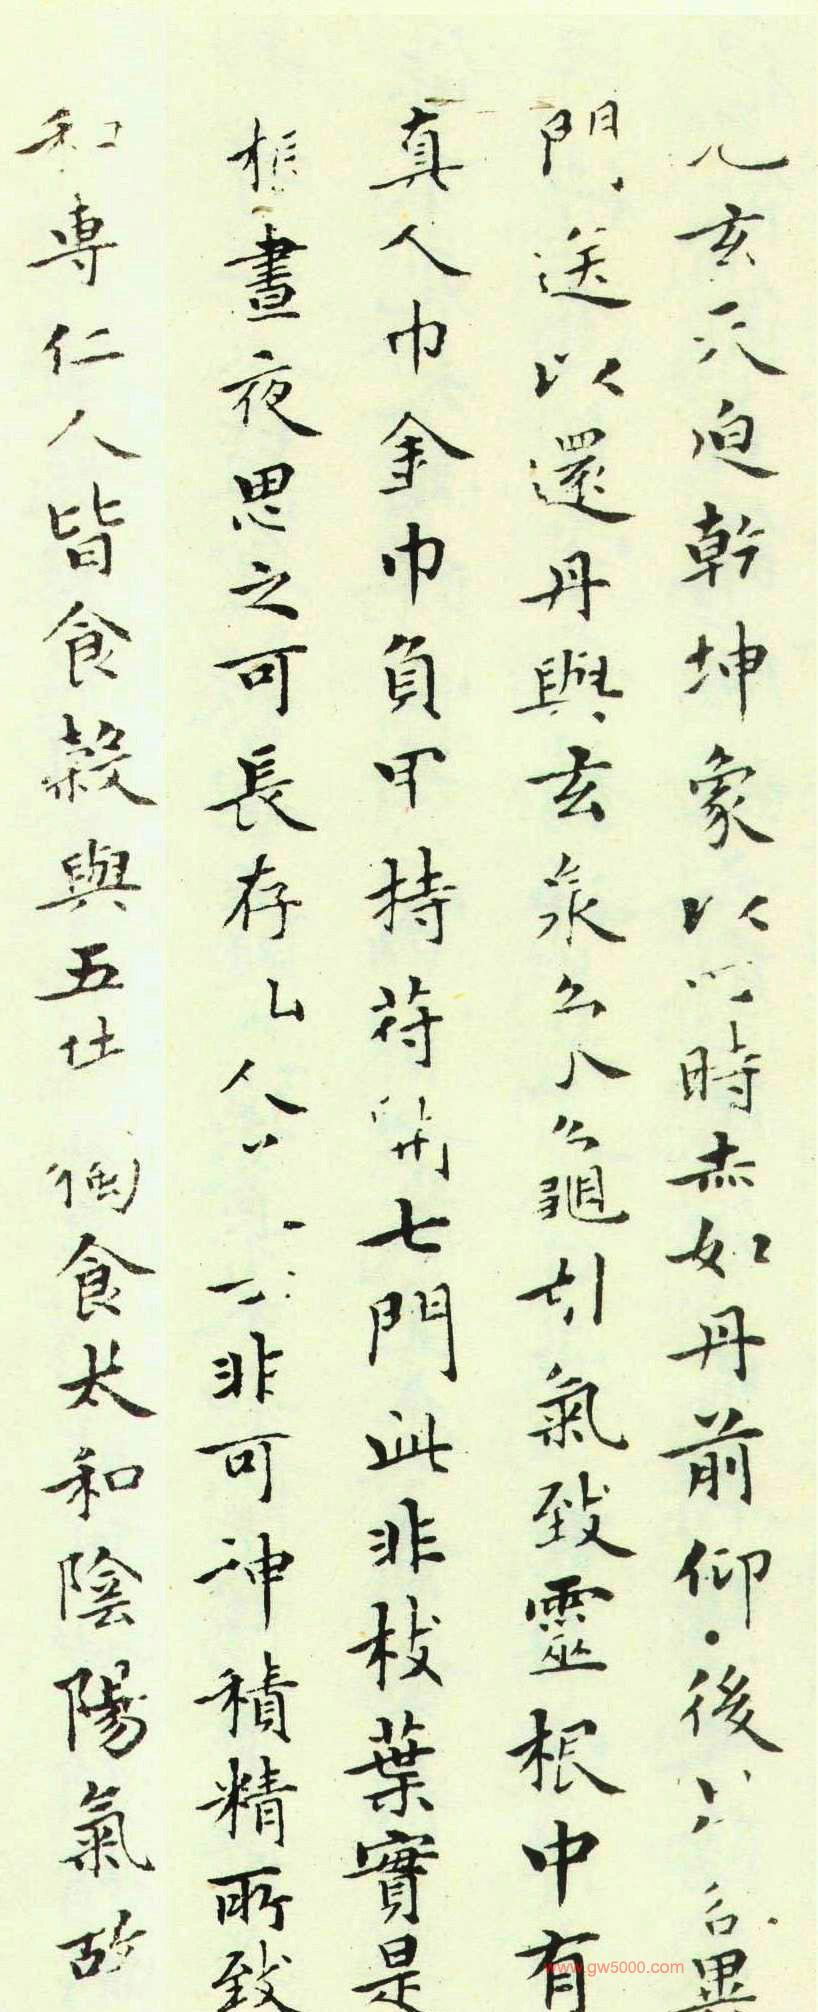 玄 迫乾坤象以 時赤如丹前仰後 
門送以還丹與玄泉 龜引氣致靈根中有
真人巾金巾負甲持苻開七門此非枝葉實是
根晝夜思之可長存 人 非可神積精所致
和專仁人皆食穀與五 食太和陰陽氣故
www.gw5000.com